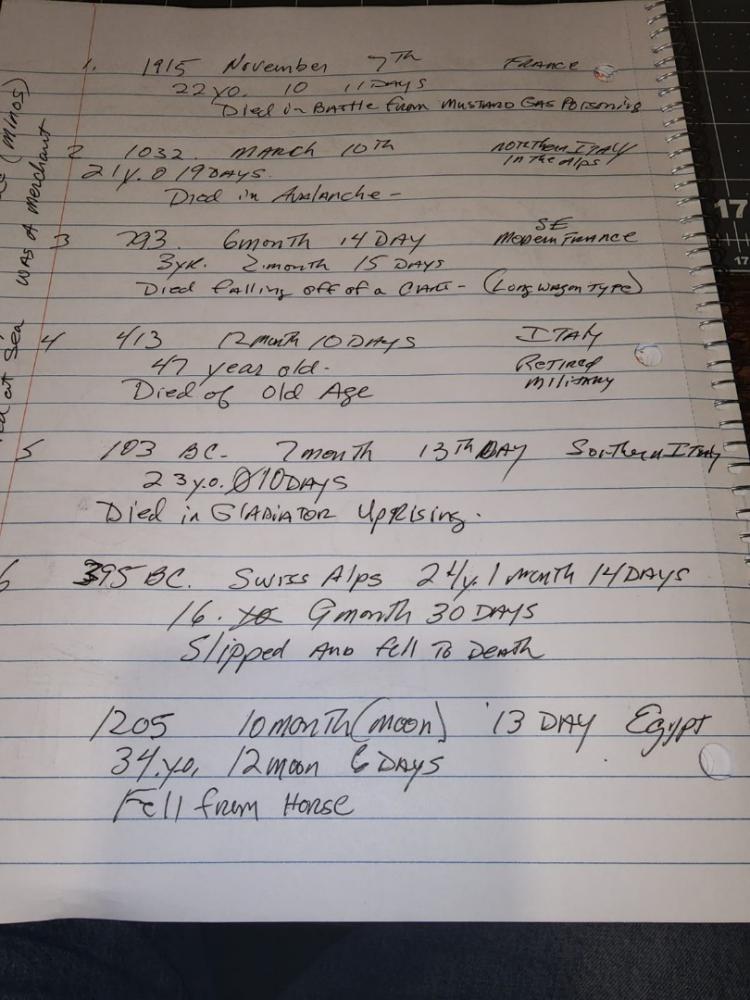 1. 1915 November 7th France
22 yo. 10 11 DAYS
Died in Battle from Mustard Gas Poisoning
2 1032. March 10th Northern Italy
In the Alps
21y. 0 19 DAYS.
Died in Avalanche -
3 793. 6 month 14 DAY SE Modern France
3 yr. 2 month 15 DAYS
Died falling off of a Cart - (Long wagon Type)
4 413 12 month 10 DAYS ITALY
47 year old. Retired
Died of Old Age military
5 103 BC. 7 month 13th DAY Southern ITALY
23 yo. 0 10 DAYS
Died in GLADIATOR Uprising.
6 395 BC. Swiss Alps 24y. 1 month 14 DAYS
16. 9 month 30 DAYS
Slipped AND fell To Death
1205 10 month (moon) 13 DAY Egypt
34 y.o. 12 moon 6 DAYS
Fell from Horse
at Sea was a merchant
(Minos)